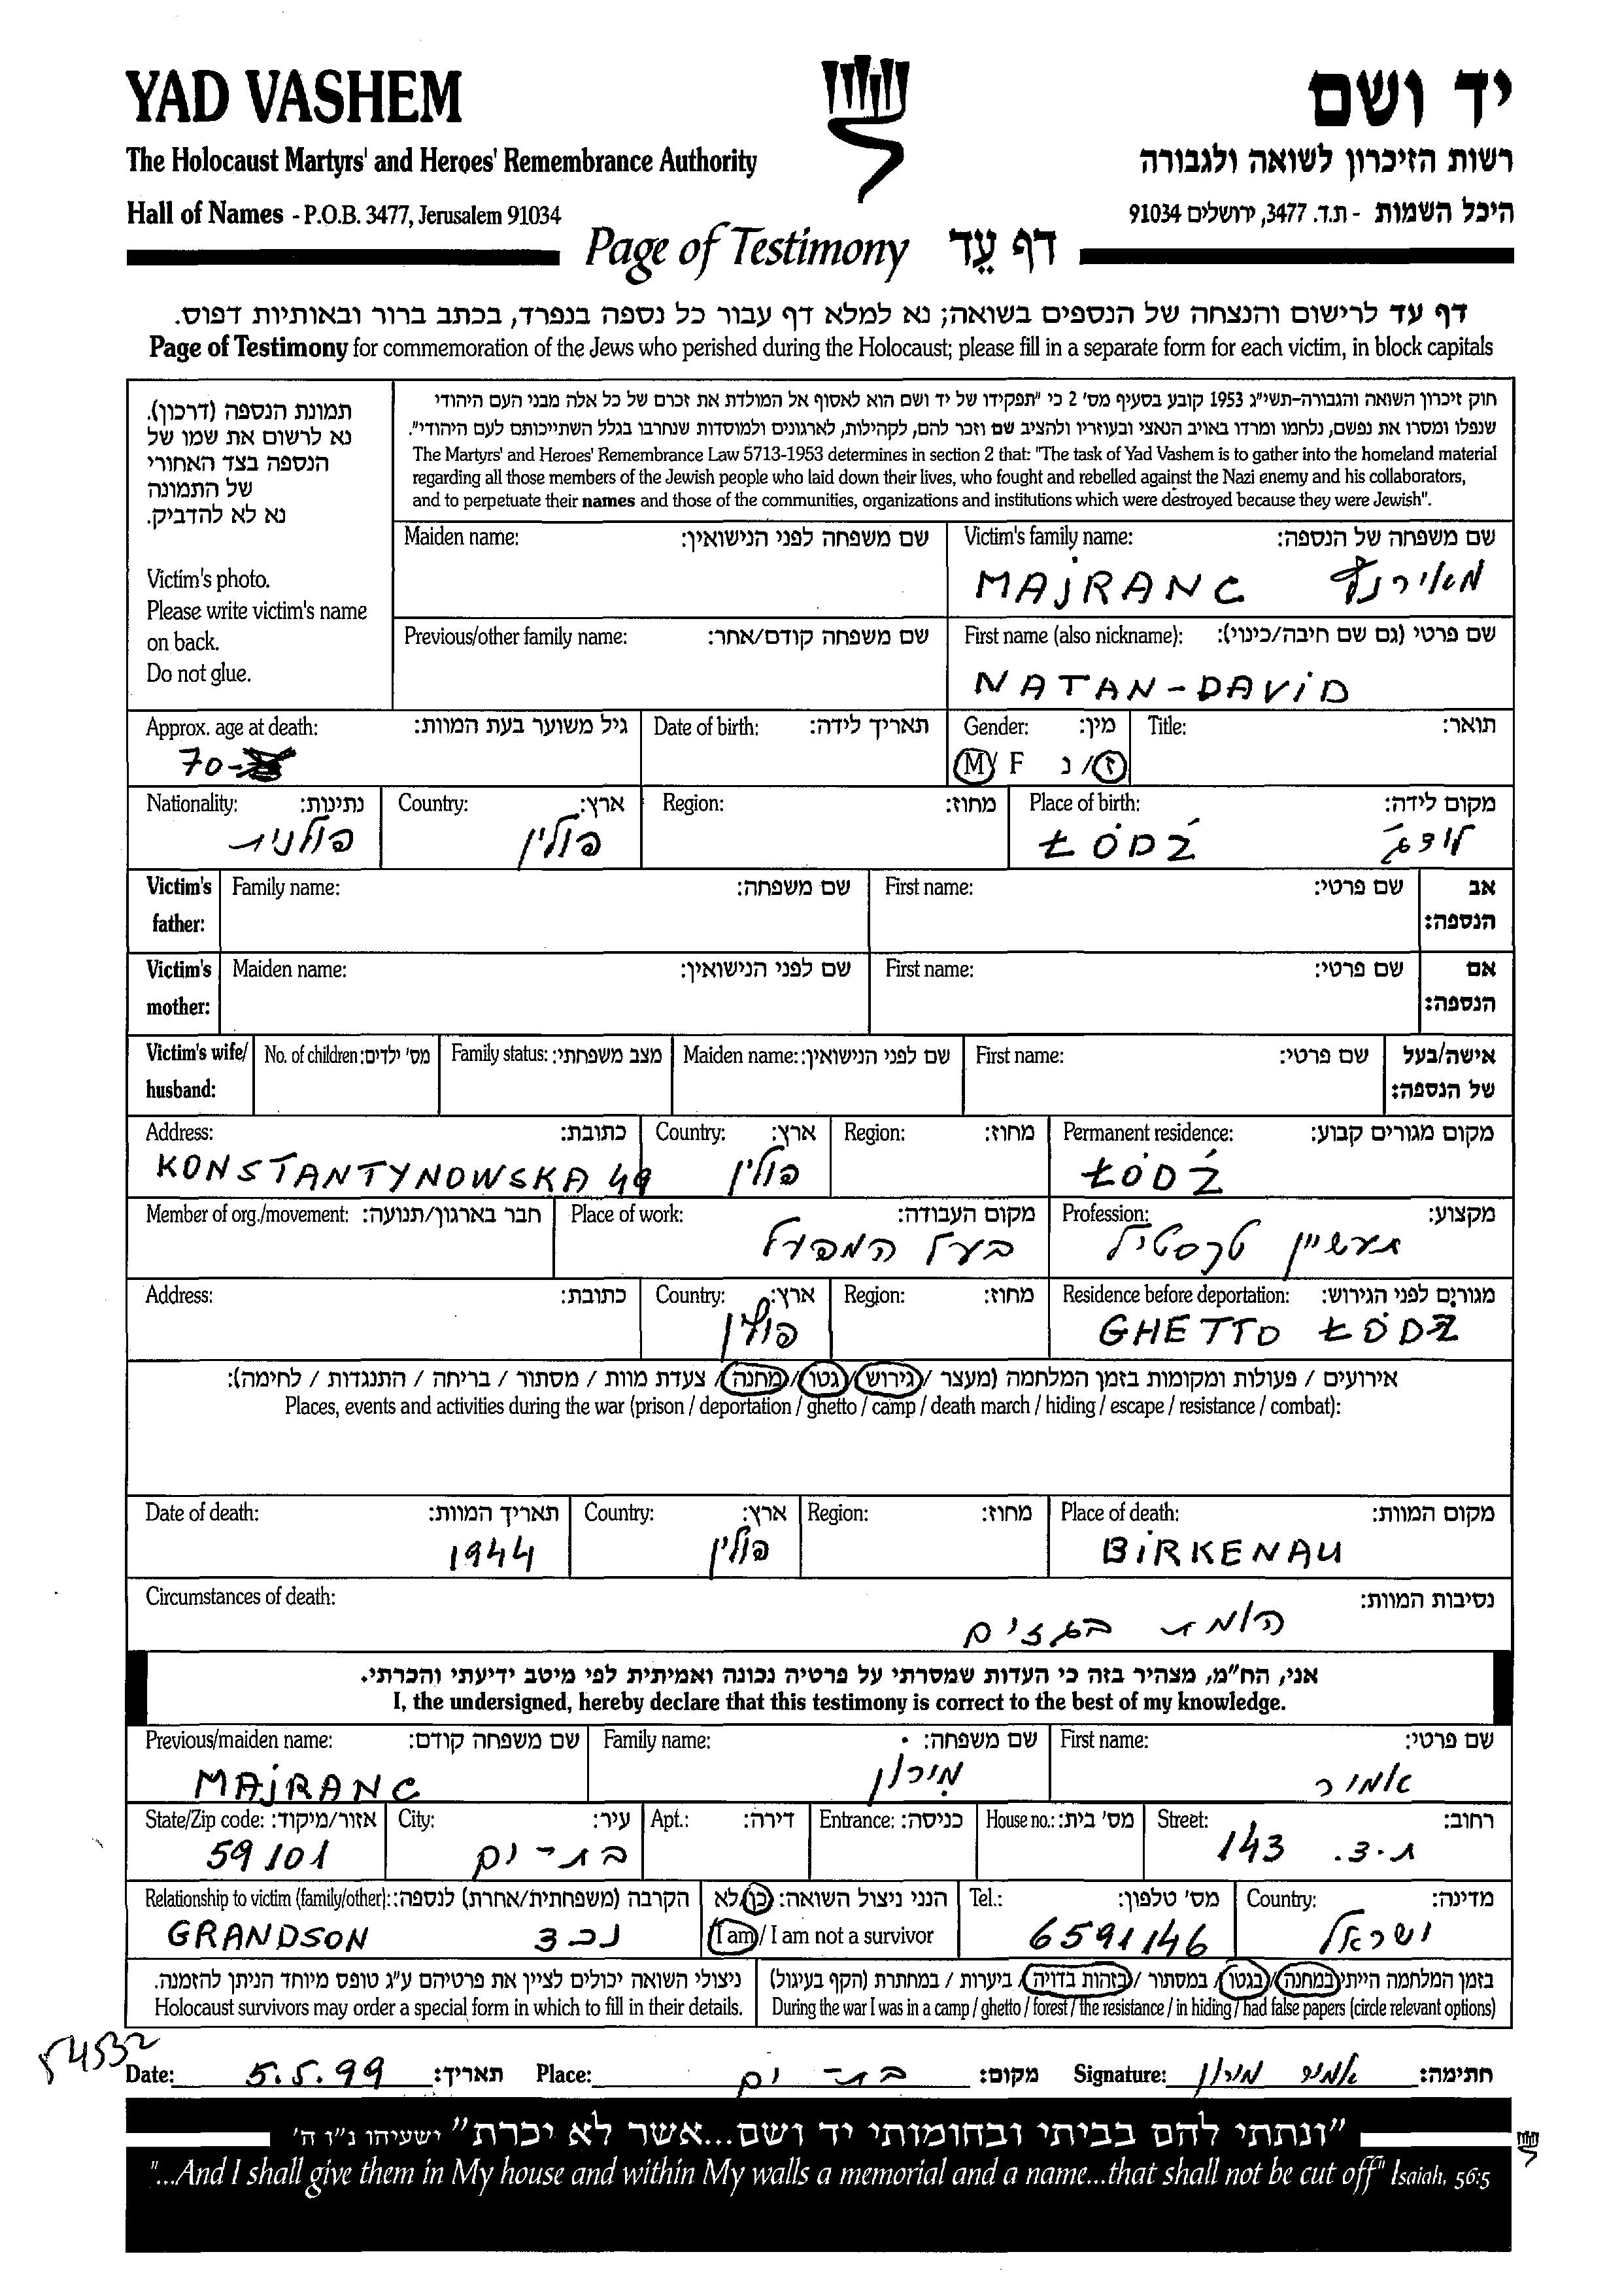 YAD VASHEM
יד ושם
The Holocaust Martyrs' and Heroes' Remembrance Authority
רשות הזיכרון לשואה ולגבורה
Hall of Names - P.O.B. 3477, Jerusalem 91034
היכל השמות - ת.ד. 3477, ירושלים 91034
Page of Testimony דף עֵד
דף עד לרישום והנצחה של הנספים בשואה; נא למלא דף עבור כל נספה בנפרד, בכתב ברור ובאותיות דפוס.
Page of Testimony for commemoration of the Jews who perished during the Holocaust; please fill in a separate form for each victim, in block capitals
תמונת הנספה (דרכון).
נא לרשום את שמו של
הנספה בצד האחורי
של התמונה
נא לא להדביק.
Victim's photo.
Please write victim's name
on back.
Do not glue.
חוק זיכרון השואה והגבורה-תשי״ג 1953 קובע בסעיף מס' 2 כי "תפקידו של יד ושם הוא לאסוף אל המולדת את זכרם של כל אלה מבני העם היהודי
שנפלו ומסרו את נפשם, נלחמו ומרדו באויב הנאצי ובעוזריו ולהציב שם וזכר להם, לקהילות, לארגונים ולמוסדות שנחרבו בגלל השתייכותם לעם היהודי".
The Martyrs' and Heroes' Remembrance Law 5713-1953 determines in section 2 that: "The task of Yad Vashem is to gather into the homeland material
regarding all those members of the Jewish people who laid down their lives, who fought and rebelled against the Nazi enemy and his collaborators,
and to perpetuate their names and those of the communities, organizations and institutions which were destroyed because they were Jewish".
Maiden name: שם משפחה לפני הנישואין:
Victim's family name: שם משפחה של הנספה:
MAJRANC מאירנץ
Previous/other family name: שם משפחה קודם/אחר:
First name (also nickname): שם פרטי (גם שם חיבה/כינוי):
NATAN-DAVID
Approx. age at death: גיל משוער בעת המוות:
70-
Date of birth: תאריך לידה:
Gender: מין:
M/ F ז/ נ
Title: תואר:
Nationality: נתינות:
פולנית
Country: ארץ:
פולין
Region: מחוז:
Place of birth: מקום לידה:
ŁÓDŹ לודז'
Victim's father: Family name: שם משפחה: First name: שם פרטי: אב הנספה:
Victim's mother: Maiden name: שם לפני הנישואין: First name: שם פרטי: אם הנספה:
Victim's wife/ husband: No. of children: מס' ילדים: Family status: מצב משפחתי: Maiden name: שם לפני הנישואין: First name: שם פרטי: אישה/בעל של הנספה:
Address: כתובת:
KONSTANTYNOWSKA 49
Country: ארץ:
פולין
Region: מחוז:
Permanent residence: מקום מגורים קבוע:
ŁÓDŹ
Member of org./movement: חבר בארגון/תנועה:
Place of work: מקום העבודה:
בעל המפעל
Profession: מקצוע:
תעשיין טקסטיל
Address: כתובת:
Country: ארץ:
פולין
Region: מחוז:
Residence before deportation: מגורים לפני הגירוש:
GHETTO ŁÓDŹ
אירועים / פעולות ומקומות בזמן המלחמה (מעצר / גירוש / גטו / מחנה / צעדת מוות / מסתור / בריחה / התנגדות / לחימה):
Places, events and activities during the war (prison / deportation / ghetto / camp / death march / hiding / escape / resistance / combat):
Date of death: תאריך המוות:
1944
Country: ארץ:
פולין
Region: מחוז:
Place of death: מקום המוות:
BIRKENAU
Circumstances of death: נסיבות המוות:
הומת בגזים
אני, הח״מ, מצהיר בזה כי העדות שמסרתי על פרטיה נכונה ואמיתית לפי מיטב ידיעתי והכרתי.
I, the undersigned, hereby declare that this testimony is correct to the best of my knowledge.
Previous/maiden name: שם משפחה קודם:
MAJRANC
Family name: שם משפחה:
מירון
First name: שם פרטי:
אמיר
State/Zip code: אזור/מיקוד:
59101
City: עיר:
בת-ים
Apt.: דירה: Entrance: כניסה: House no.: מס' בית: Street: רחוב:
ת.ד. 143
Relationship to victim (family/other): הקרבה (משפחתית/אחרת) לנספה:
GRANDSON נכד
הנני ניצול השואה: כן/לא
I am / I am not a survivor
Tel.: מס' טלפון:
6591146
Country: מדינה:
ישראל
ניצולי השואה יכולים לציין את פרטיהם ע״ג טופס מיוחד הניתן להזמנה.
Holocaust survivors may order a special form in which to fill in their details.
בזמן המלחמה הייתי במחנה / בגטו / במסתור / בזהות בדויה / ביערות / במחתרת (הקף בעיגול)
During the war I was in a camp / ghetto / forest / the resistance / in hiding / had false papers (circle relevant options)
54532
Date: 5.5.99 תאריך: Place: בת-ים מקום: Signature: אמיר מירון חתימה:
"ונתתי להם בביתי ובחומותי יד ושם...אשר לא יכרת" ישעיהו נ״ו ה'
"...And I shall give them in My house and within My walls a memorial and a name...that shall not be cut off" Isaiah, 56:5